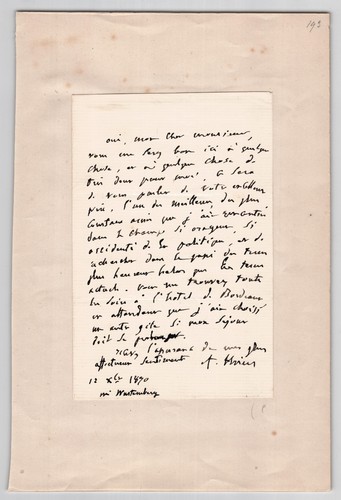 193
oui, mon cher monsieur,
vous me serez bon ici à quelque
chose, et à quelque chose de
très doux pour moi. Ce sera
de vous parler de votre excellent
père, l'un des meilleurs des plus
amis que j'aie rencontrés
dans le champ si orageux, si
accidenté de la politique, et de
chercher dans le passé des
plus heureux que les
actuels. vous me trouverez toute
les soirs à l'hôtel de Bordeaux
en attendant que j'aie choisi
un autre gîte si mon séjour
doit se prolonger.
l'expression de mes plus
affectueux sentiments A. Thiers
12 Xbre 1870